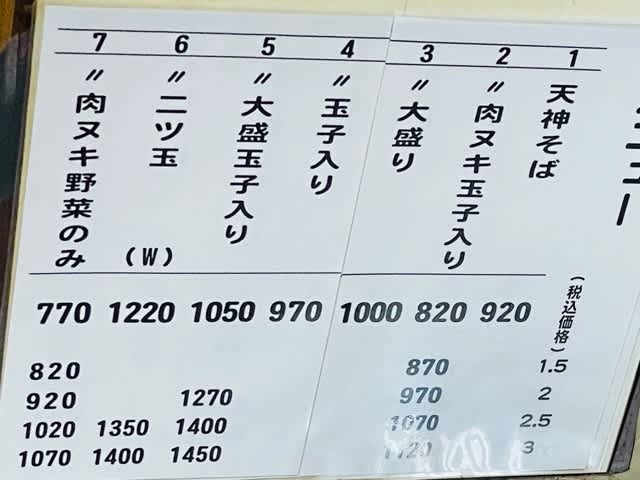 ニュー
1 2 3 4 5 6 7
天神そば
〃肉ヌキ玉子入り
〃大盛り
〃玉子入り
〃大盛玉子入り
〃二ツ玉 (W)
〃肉ヌキ野菜のみ
(税込価格)
920 820 1000 970 1050 1220 770
1.5 870 820
2 970 1270 920
2.5 1070 1400 1350 1020
3 1120 1450 1400 1070